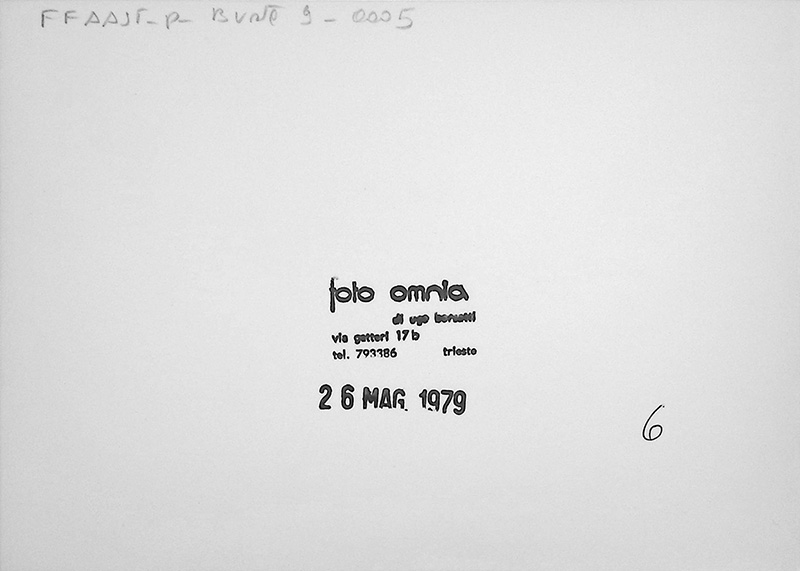 FFAAST-p- BVNE 9 - 0005
foto omnia
di ugo borsatti
via gatteri 17 b
tel. 793386 trieste
26 MAG. 1979
6